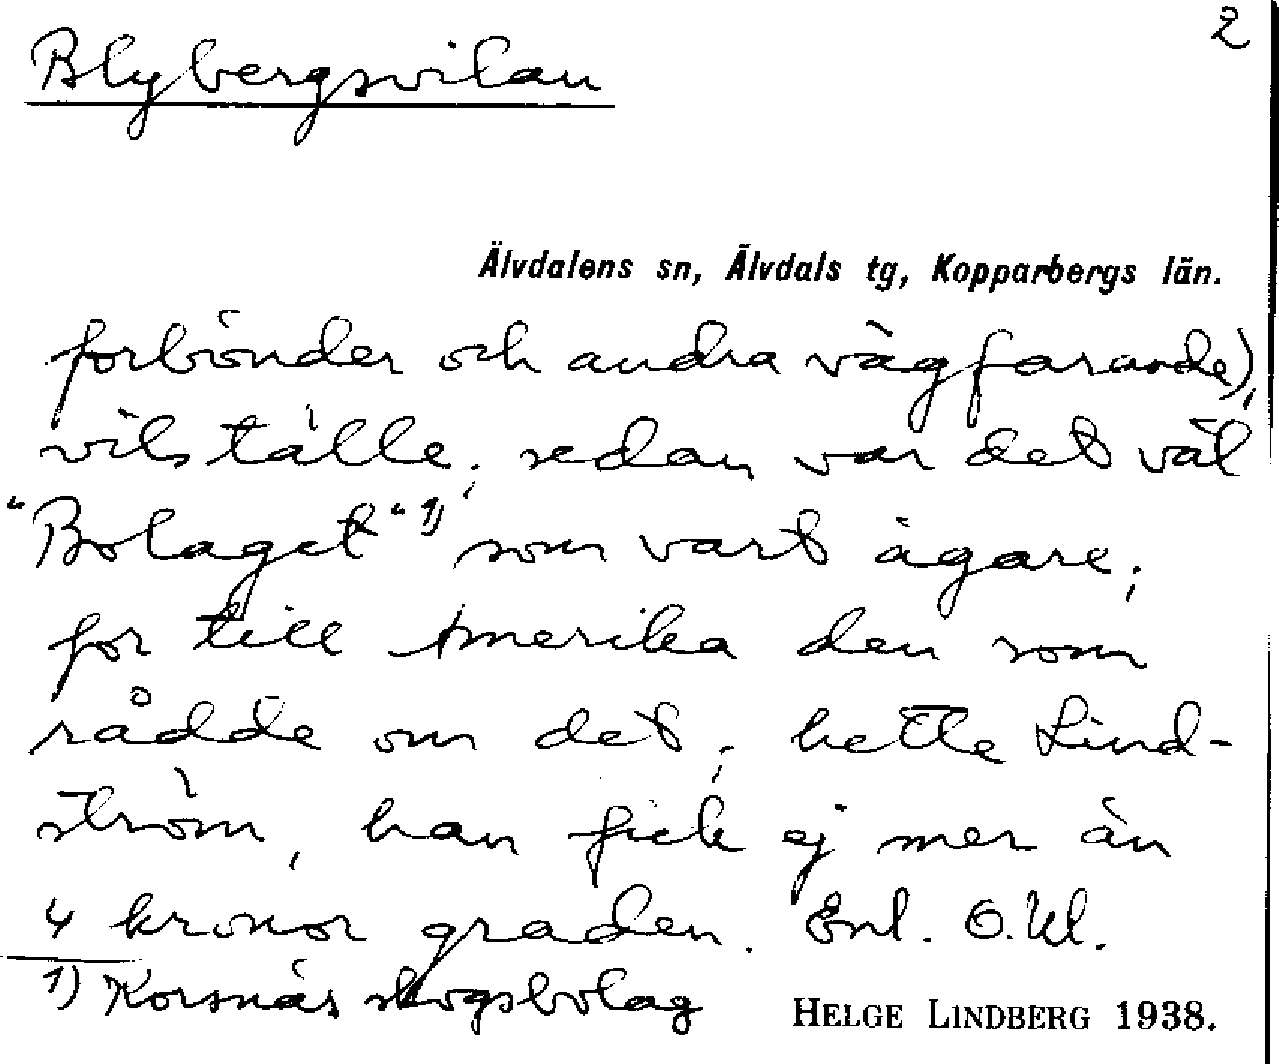 2
Blybergsvilan
Älvdalens sn, Älvdals tg, Kopparbergs län.
forbönder och andra vägfarande),
vilställe; sedan var det väl
"Bolaget" 1) som vart ägare;
for till Amerika den som
rådde om det; hette Lind-
ström, han fick ej mer än
4 kronor graden. Enl. O.Ul.
1) Korsnäs skogsbolag
HELGE LINDBERG 1938.